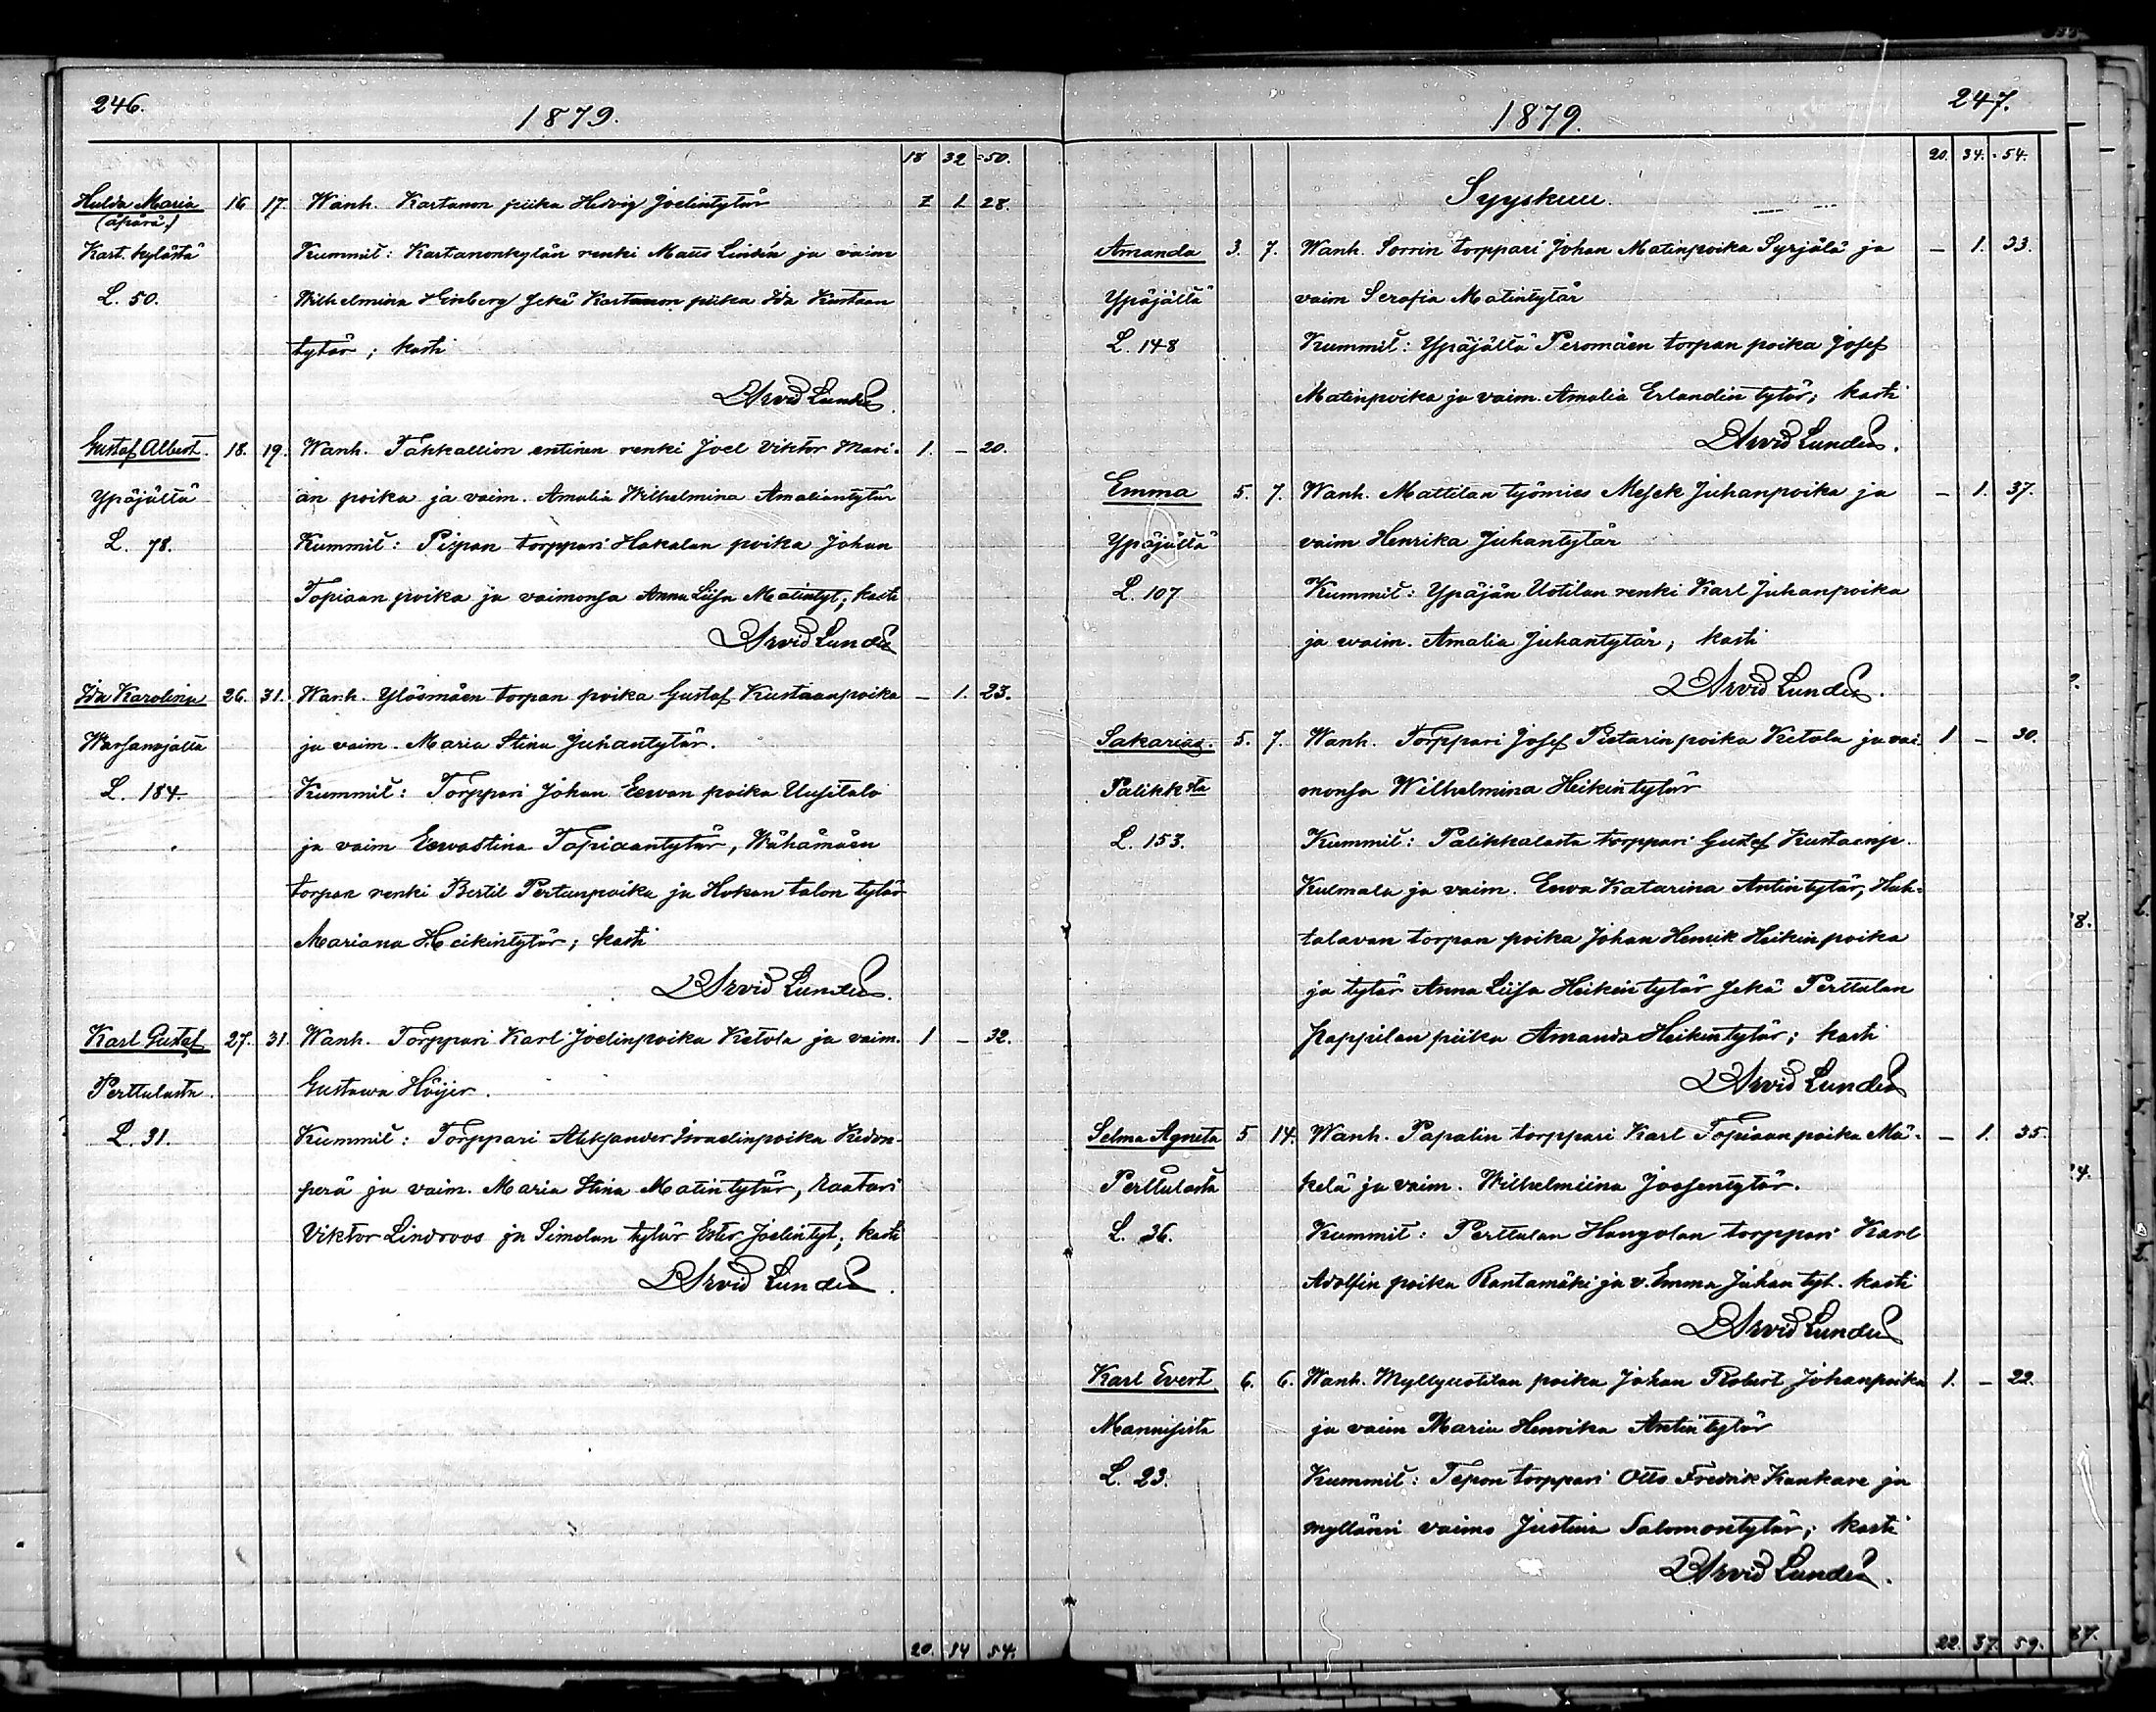 246.
1879.
18 32 =50.
Hulda Maria 16 17. Wanh. Kartanon piika Hedvig Joelintytär 1 28.
(äpärä)
Kart. kylästä Kummit: Kartanonkylän renki Maus Lindén ja vaim
L. 50. Wilhelmina Hinberg sekä Kartanon piika Ida Kustaan
tytär; kasti
Arvid Lundén
Gustaf Albert. 18. 19. Wanh. Tähkallion entinen renki Joel Viktor Mari- 1. – 20.
Ypäjältä an poika ja vaim. Amalia Wilhelmina Amaliantytär
L. 78. Kummit: Pispan torppari Hakalan poika Johan
Topiaan poika ja vaimonsa Anna Liisa Matintyt; kasti
Arvid Lundén
Ida Karolina 26. 31. Wanh. Ylösmäen torpan poika Gustaf Kustaanpoika – 1. 23.
Warsanojalta ja vaim. Maria Stina Juhantytär.
L. 184. Kummit: Torppari Johan Eewan poika Uusitalo
ja vaim Eewastina Topiaantytär, Wähämäen
torpan renki Bertil Pertunpoika ja Hokan talon tytär
Mariana Heikintytär; kasti
Arvid Lundén.
Karl Gustaf 27. 31. Wanh. Torppari Karl Joelinpoika Ketola ja vaim. 1 – 32.
Perttulasta. Gustawa Höijer.
L. 31. Kummit: Torppari Aleksander Israelinpoika Kidon-
perä ja vaim. Maria Stina Matintytär, Raatari
Viktor Lindroos ja Simolan tytär Ester Joelintyt; kasti
Arvid Lundén.
20. 34 54.
247.
1879.
20. 34. =54.
Syyskuu.
Amanda 3. 7. Wanh. Sorrin torppari Johan Matinpoika Syrjälä ja – 1. 33.
Ypäjältä vaim Serafia Matintytär
L. 148 Kummit: Ypäjältä Peromäen torpan poika Josef
Matinpoika ja vaim. Amalia Erlandin tytär; kasti
Arvid Lundén.
Emma 5. 7. Wanh. Mattilan työmies Mesek Juhanpoika ja – 1. 37.
Ypäjältä vaim Henrika Juhantytär
L. 107 Kummit: Ypäjän Uotilan renki Karl Juhanpoika
ja vaim. Amalia Juhantytär; kasti
Arvid Lundén.
Sakarias. 5. 7. Wanh. Torppari Josef Pietarin poika Ketola ja vai- 1 – 30.
Palikksta monsa Wilhelmina Heikintytär
L. 153. Kummit: Palikkalasta torppari Gustaf Kustaanp.
Kulmala ja vaim. Eewa Katarina Antintytär, Huh-
talavan torpan poika Johan Henrik Heikinpoika
ja tytär Anna Liisa Heikintytär sekä Perttulan
Pappilan piika Amanda Heikintytär; kasti
Arvid Lundén
Selma Agneta 5 14. Wanh. Papalin torppari Karl Topiaan poika Mä- – 1. 35.
Perttulasta kelä ja vaim. Wilhelmiina Joosentytär.
L. 36. Kummit: Perttulan Hongolan torppari Karl
Adolfin poika Rantamäki ja v. Emma Juhan tyt. kasti
Arvid Lundén
Karl Evert 6. 6. Wanh. Myllyuotilan poika Johan Robert Johanpoika 1. – 22.
Mannisista ja vaim Maria Henrika Antintytär
L. 23. Kummit: Tepon torppari Otto Fredrik Kankare ja
myllärin vaimo Justina Salomontytär; kasti
Arvid Lundén.
22. 37. 59.